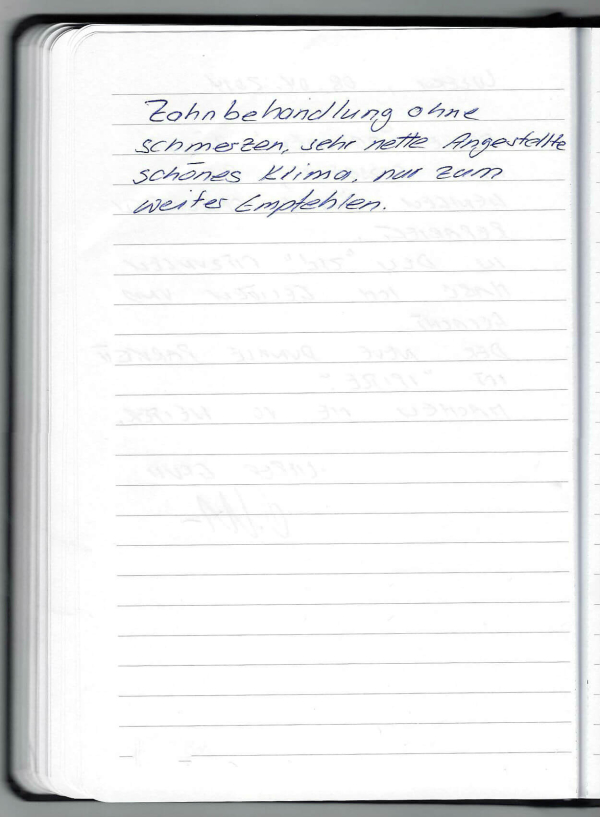 Zahnbehandlung ohne
schmerzen, sehr nette Angestellte
schönes Klima, nur zum
weiter Empfehlen.